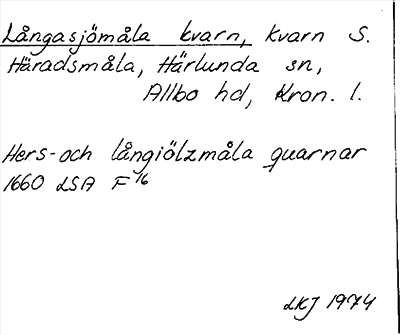 Långasjömåla kvarn, kvarn S.
Häradsmåla, Härlunda sn,
Allbo hd, Kron. l.
Hers- och långiölzmåla quarnar
1660 LSA F 16
LKJ 1974